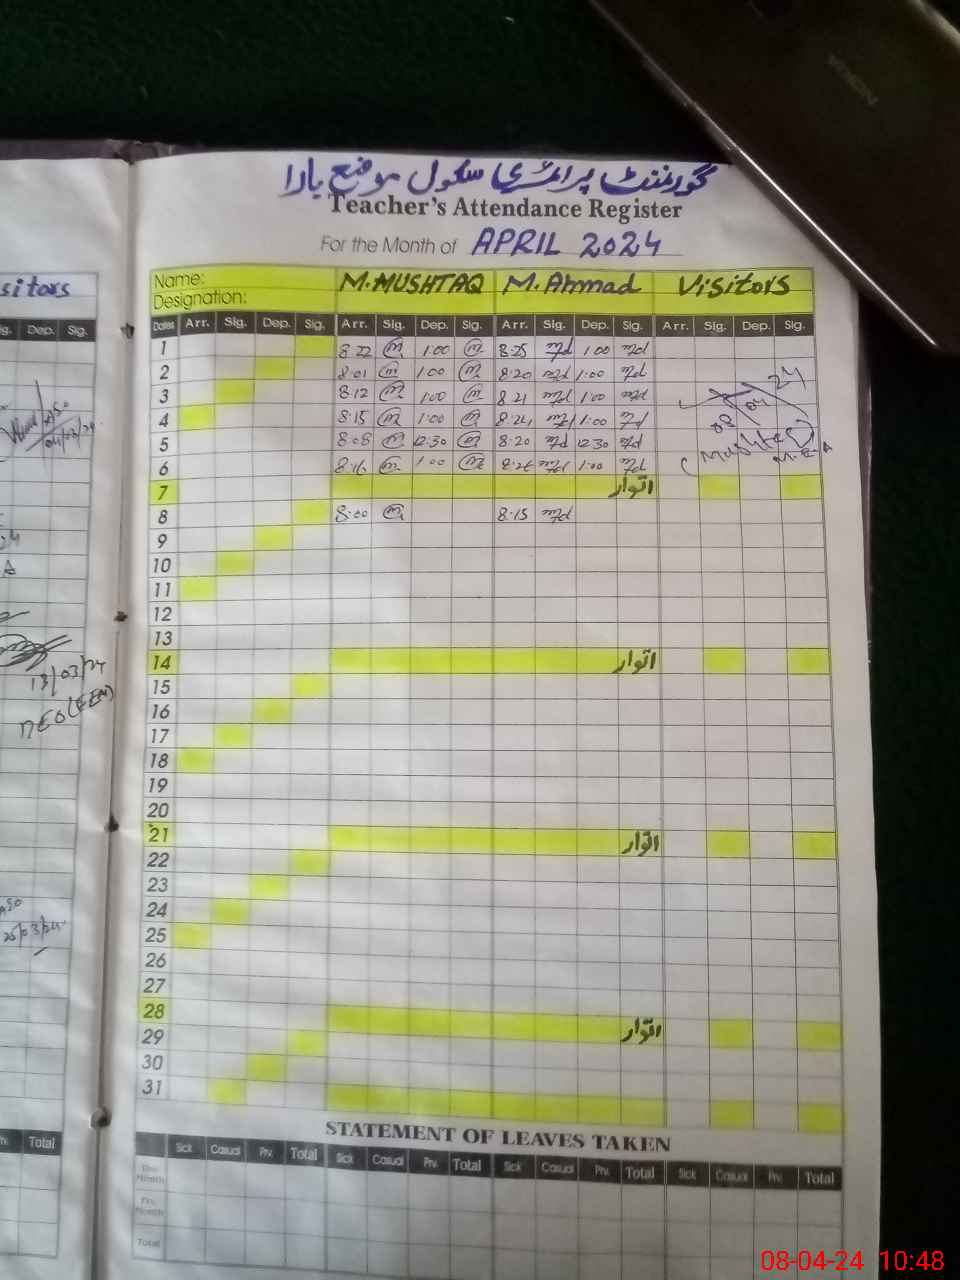 گورنمنٹ پرائمری سکول موضع یارا
Teacher's Attendance Register
For the Month of APRIL 2024
Name: M.MUSHTAQ M. Ahmad Visitors
Designation:
Dates Arr. Sig. Dep. Sig. Arr. Sig. Dep. Sig. Arr. Sig. Dep. Sig. Arr. Sig. Dep. Sig.
1 8.22 1.00 8.25 1.00
2 8.01 1.00 8.20 1.00
3 8.12 1.00 8.21 1.00
4 8.15 1.00 8.24 1.00
5 8.08 12.30 8.20 12.30
6 8.16 1.00 1.00
08 04 24
7 اتوار
8 8.00 8.15
9
10
11
12
13
14 اتوار
15
16
17
18
19
20
21 اتوار
22
23
24
25
26
27
28 اتوار
29
30
31
STATEMENT OF LEAVES TAKEN
Sick Casual Prv. Total Sick Casual Prv. Total Sick Casual Prv. Total Sick Casual Prv. Total
Month
Prv. Month
Total
sitors
Dep. Sig.
04/03/24
13/03/24
25/03/24
Total
08-04-24 10:48